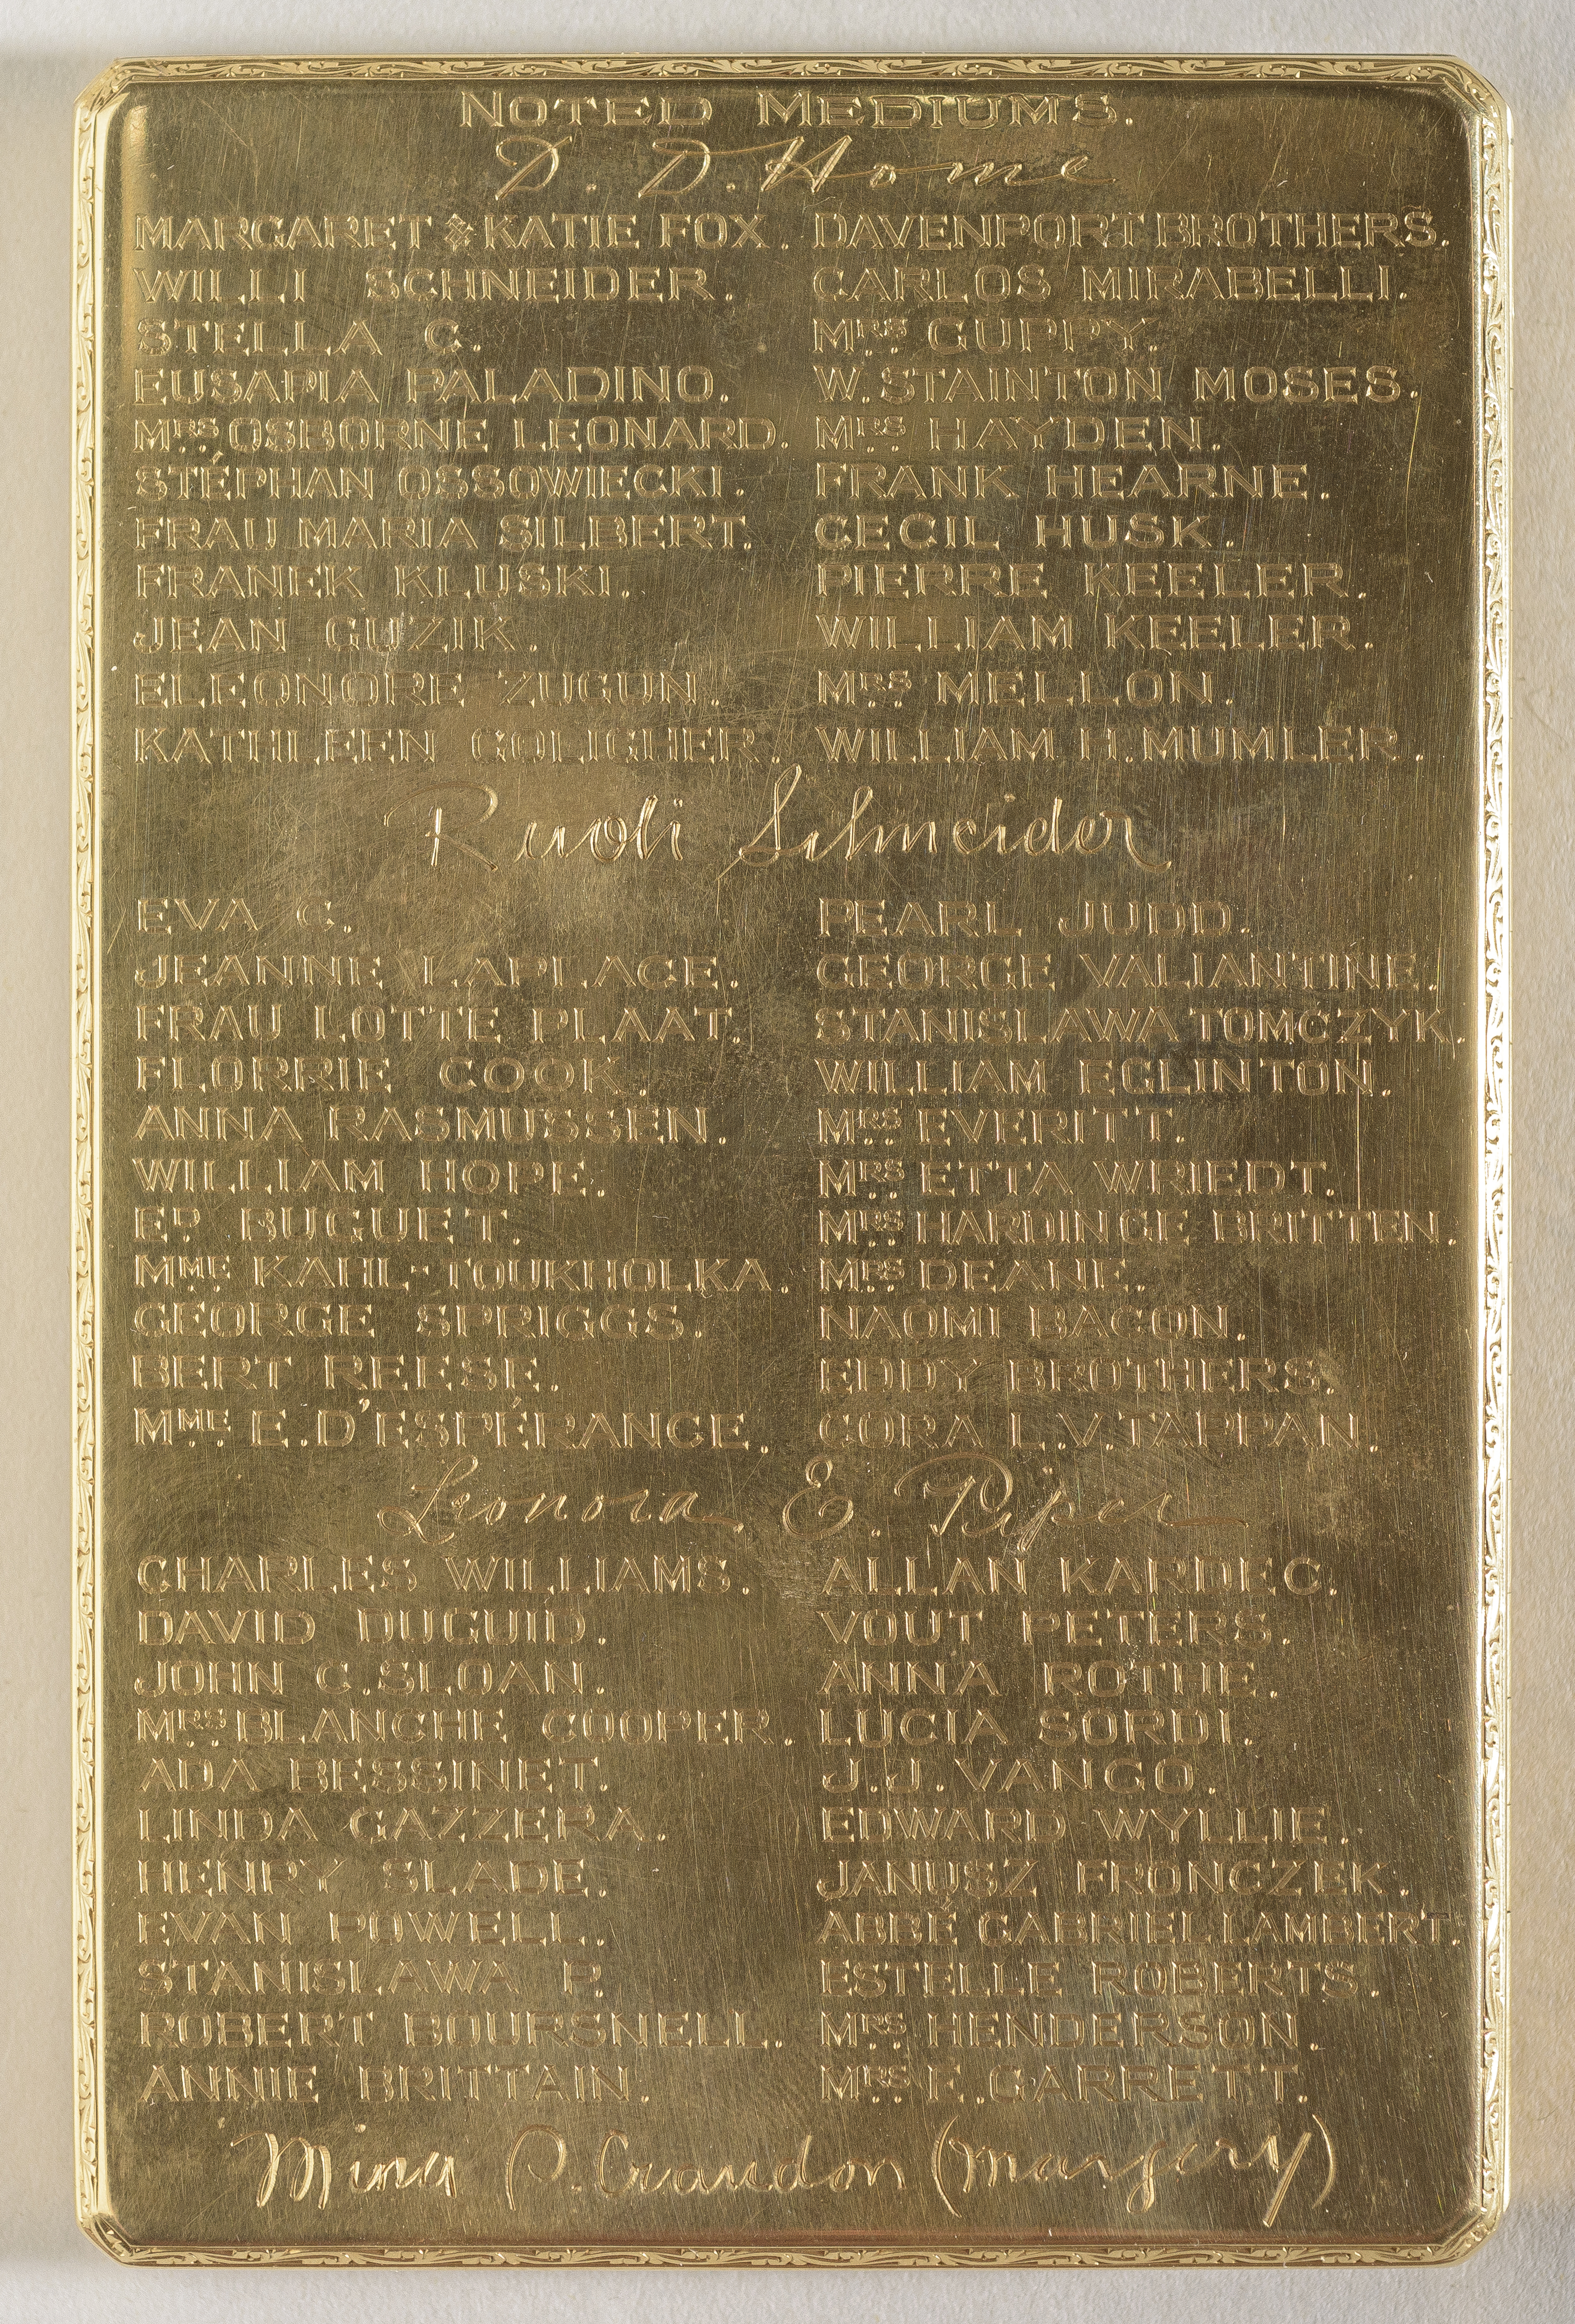 NOTED MEDIUMS.
D. D. Home
MARGARET & KATIE FOX. DAVENPORT BROTHERS.
WILLI SCHNEIDER. CARLOS MIRABELLI.
STELLA C. MRS. GUPPY.
EUSAPIA PALADINO. W. STAINTON MOSES.
MRS. OSBORNE LEONARD. MRS. HAYDEN.
STÉPHAN OSSOWIECKI. FRANK HEARNE.
FRAU MARIA SILBERT. CECIL HUSK.
FRANEK KLUSKI. PIERRE KEELER.
JEAN GUZIK. WILLIAM KEELER.
ELEONORE ZUGUN. MRS. MELLON.
KATHLEEN GOLIGHER. WILLIAM H. MUMLER.
Rudi Schneider
EVA C. PEARL JUDD.
JEANNE LAPLACE. GEORGE VALIANTINE.
FRAU LOTTE PLAAT. STANISLAWA TOMCZYK.
FLORRIE COOK. WILLIAM EGLINTON.
ANNA RASMUSSEN. MRS. EVERITT.
WILLIAM HOPE. MRS. ETTA WRIEDT.
ED. BUGUET. MRS. HARDINGE BRITTEN.
MME. KAHL-TOUKHOLKA. MRS. DEANE.
GEORGE SPRIGGS. NAOMI BACON.
BERT REESE. EDDY BROTHERS.
MME. E. D'ESPÉRANCE. CORA L.V. TAPPAN.
Leonora E. Piper
CHARLES WILLIAMS. ALLAN KARDEC.
DAVID DUGUID. VOUT PETERS.
JOHN C. SLOAN. ANNA ROTHE.
MRS. BLANCHE COOPER. LUCIA SORDI.
ADA BESSINET. J.J. VANGO.
LINDA GAZZERA. EDWARD WYLLIE.
HENRY SLADE. JANUSZ FRONCZEK.
EVAN POWELL. ABBÉ GABRIEL LAMBERT.
STANISLAWA P. ESTELLE ROBERTS.
ROBERT BOURSNELL. MRS. HENDERSON.
ANNIE BRITTAIN. MRS. E. GARRETT.
Mina P. Crandon (Margery)